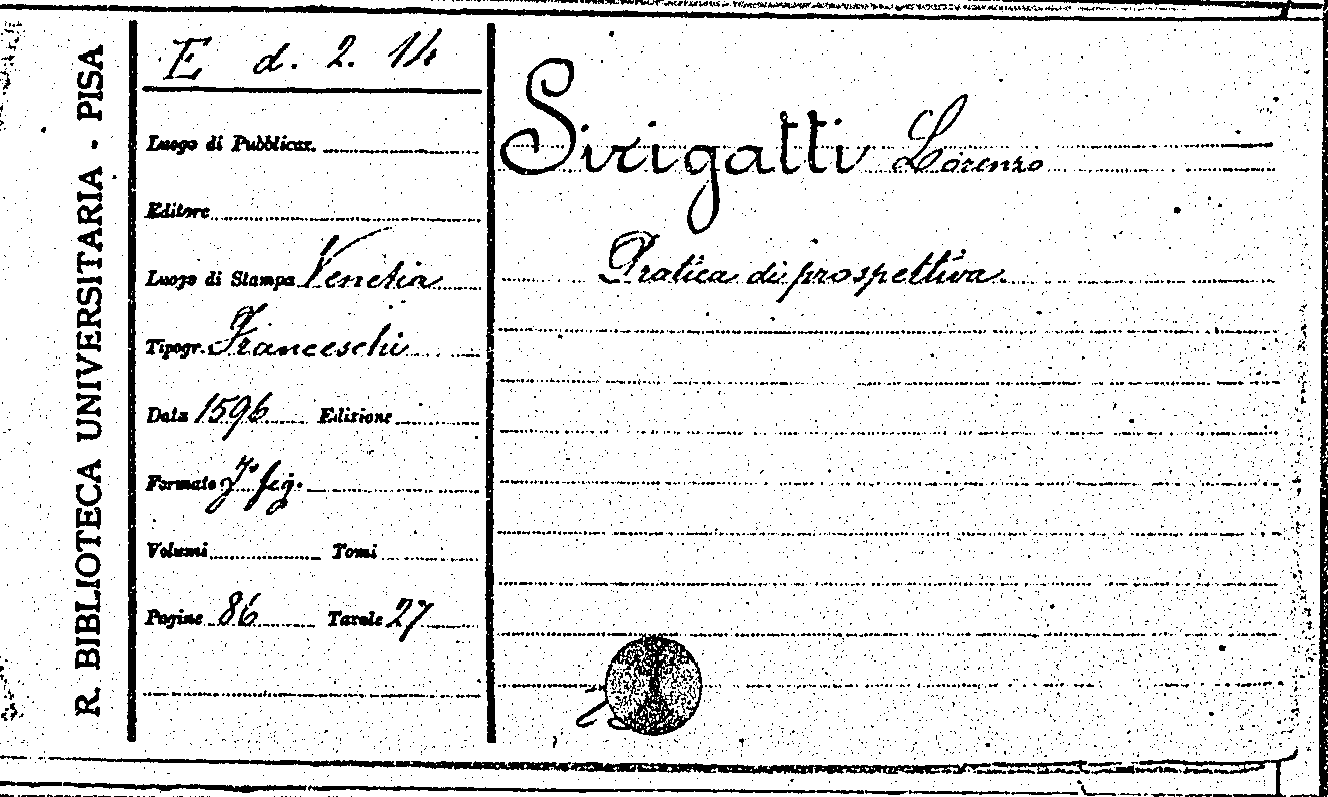 R. BIBLIOTECA UNIVERSITARIA - PISA
E d. 2. 14
Luogo di Pubblicaz.
Editore
Luogo di Stampa Venetia
Tipogr. Franceschi
Data 1596 Edizione
Formato fig.
Volumi Tomi
Pagine 86 Tavole 27
Sirigatti Lorenzo
Pratica di prospettiva.